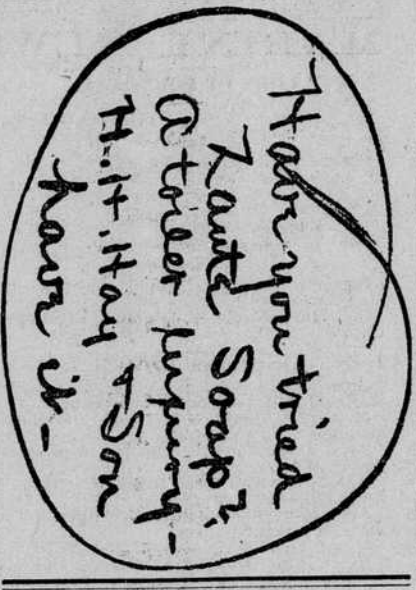 Have you tried
Zante Soap?
A toilet luxury-
H.H. Hay & Son
have it-